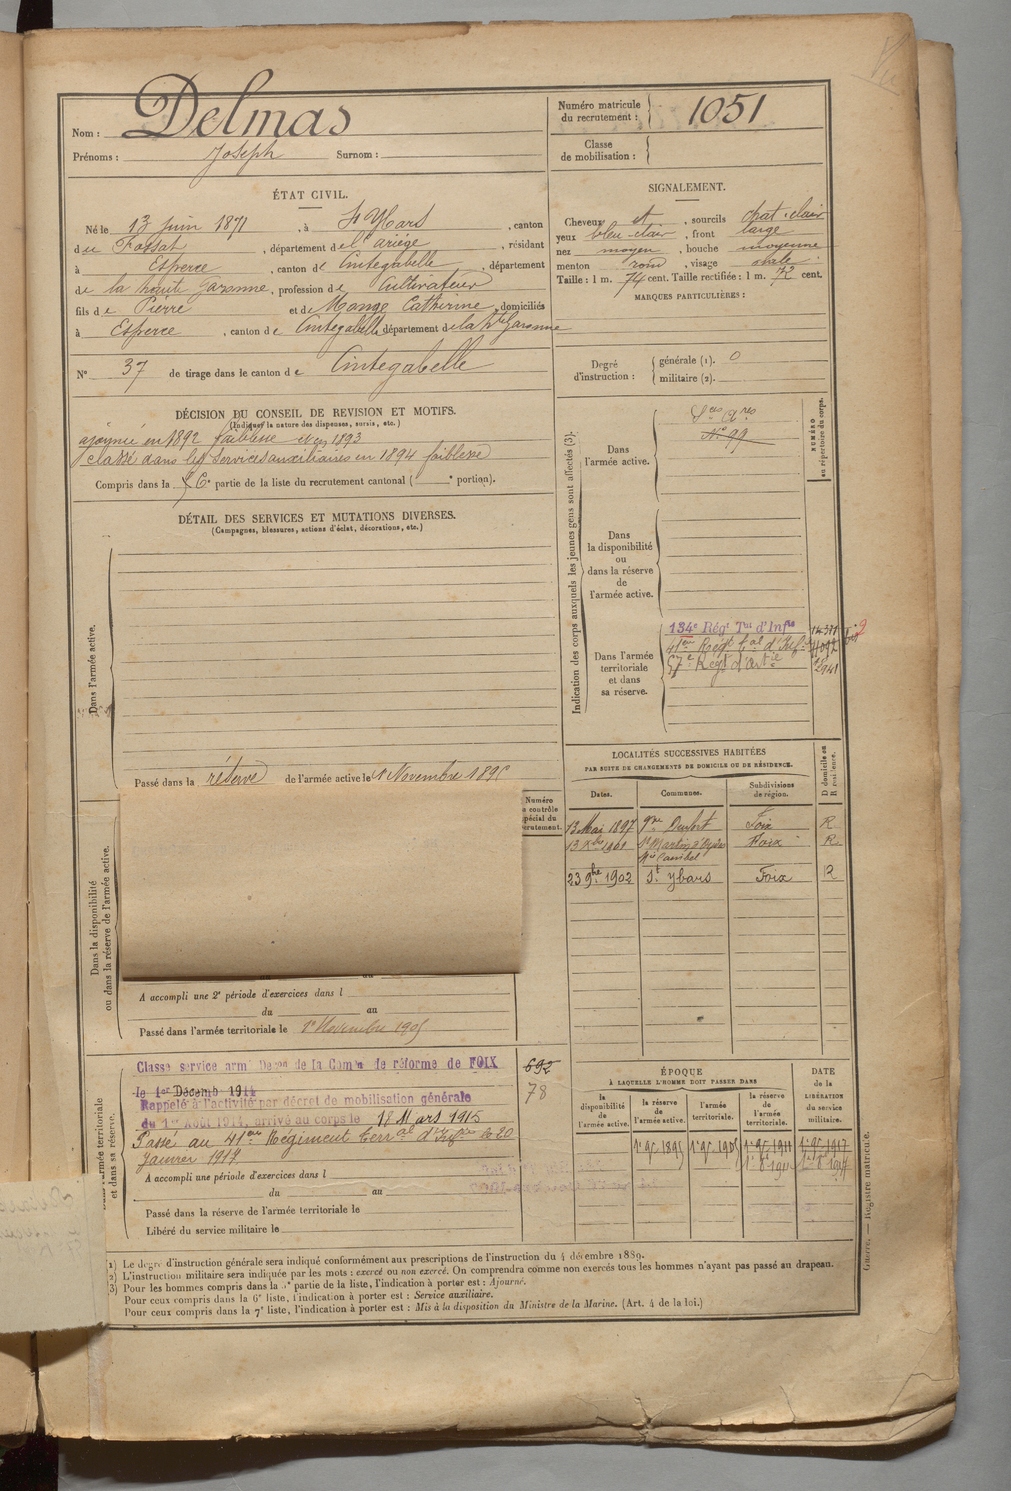 Nom : Delmas
Prénoms : Joseph Surnom :
Numéro matricule du recrutement : 1051
Classe de mobilisation :
ÉTAT CIVIL.
Né le 13 juin 1871, à St Ybars, canton
du Fossat, département de l'ariège, résidant
à Esperce, canton de Cintegabelle, département
de la haute Garonne, profession de Cultivateur
fils de Pierre et de Monge Catherine, domiciliés
à Esperce, canton de Cintegabelle département de la Hte Garonne
N° 37 de tirage dans le canton de Cintegabelle
SIGNALEMENT.
Cheveux et, sourcils chat. clair
yeux bleu-clair, front large
nez moyen, bouche moyenne
menton rond, visage ovale
Taille : 1 m. 74 cent. Taille rectifiée : 1 m. 72 cent.
MARQUES PARTICULIÈRES :
Degré d'instruction : générale (1). 0
militaire (2).
DÉCISION DU CONSEIL DE REVISION ET MOTIFS.
(Indiquer la nature des dispenses, sursis, etc.)
ajourné en 1892 faiblesse et en 1893
classé dans les services auxiliaires en 1894 faiblesse
Compris dans la 6e partie de la liste du recrutement cantonal ( e portion).
DÉTAIL DES SERVICES ET MUTATIONS DIVERSES.
(Campagnes, blessures, actions d'éclat, décorations, etc.)
Dans l'armée active.
Passé dans la réserve de l'armée active le 1 Novembre 1895
Indication des corps auxquels les jeunes gens sont affectés (3).
NUMÉRO au répertoire du corps.
Dans l'armée active.
Sces Ares
N° 99
Dans la disponibilité ou dans la réserve de l'armée active.
Dans l'armée territoriale et dans sa réserve.
134e Régt Tal d'Infie
41eme Régt tal d'Infie
57e Régt d'Artie
LOCALITÉS SUCCESSIVES HABITÉES
PAR SUITE DE CHANGEMENTS DE DOMICILE OU DE RÉSIDENCE.
Dates. Communes. Subdivisions de région. D domicile ou R résidence.
13 Mai 1897 Durfort Foix R
1901 Foix R
23 9bre 1902 St Ybars Foix R
Dans la disponibilité ou dans la réserve de l'armée active.
Numéro
contrôle
spécial du
recrutement.
A accompli une 2e période d'exercices dans l
du au
Passé dans l'armée territoriale le 1er Novembre 1905
Classé service armé de la Comon de réforme de FOIX
le 1er Décemb 1914
Rappelé à l'activité par décret de mobilisation générale
du 1er Août 1914, arrivé au corps le 18 Mars 1915
Passé au 41eme Régiment territal d'Infie le 20
Janvier 1917
692
78
A accompli une période d'exercices dans l
du au
Passé dans la réserve de l'armée territoriale le
Libéré du service militaire le
l'armée territoriale et dans sa réserve.
ÉPOQUE
À LAQUELLE L'HOMME DOIT PASSER DANS
la disponibilité de l'armée active.
la réserve de l'armée active.
l'armée territoriale.
la réserve de l'armée territoriale.
DATE de la LIBÉRATION du service militaire.
Guerre. — Registre matricule.
1) Le degré d'instruction générale sera indiqué conformément aux prescriptions de l'instruction du 4 décembre 1889.
2) L'instruction militaire sera indiquée par les mots : exercé ou non exercé. On comprendra comme non exercés tous les hommes n'ayant pas passé au drapeau.
3) Pour les hommes compris dans la 5e partie de la liste, l'indication à porter est : Ajourné.
Pour ceux compris dans la 6e liste, l'indication à porter est : Service auxiliaire.
Pour ceux compris dans la 7e liste, l'indication à porter est : Mis à la disposition du Ministre de la Marine. (Art. 4 de la loi.)